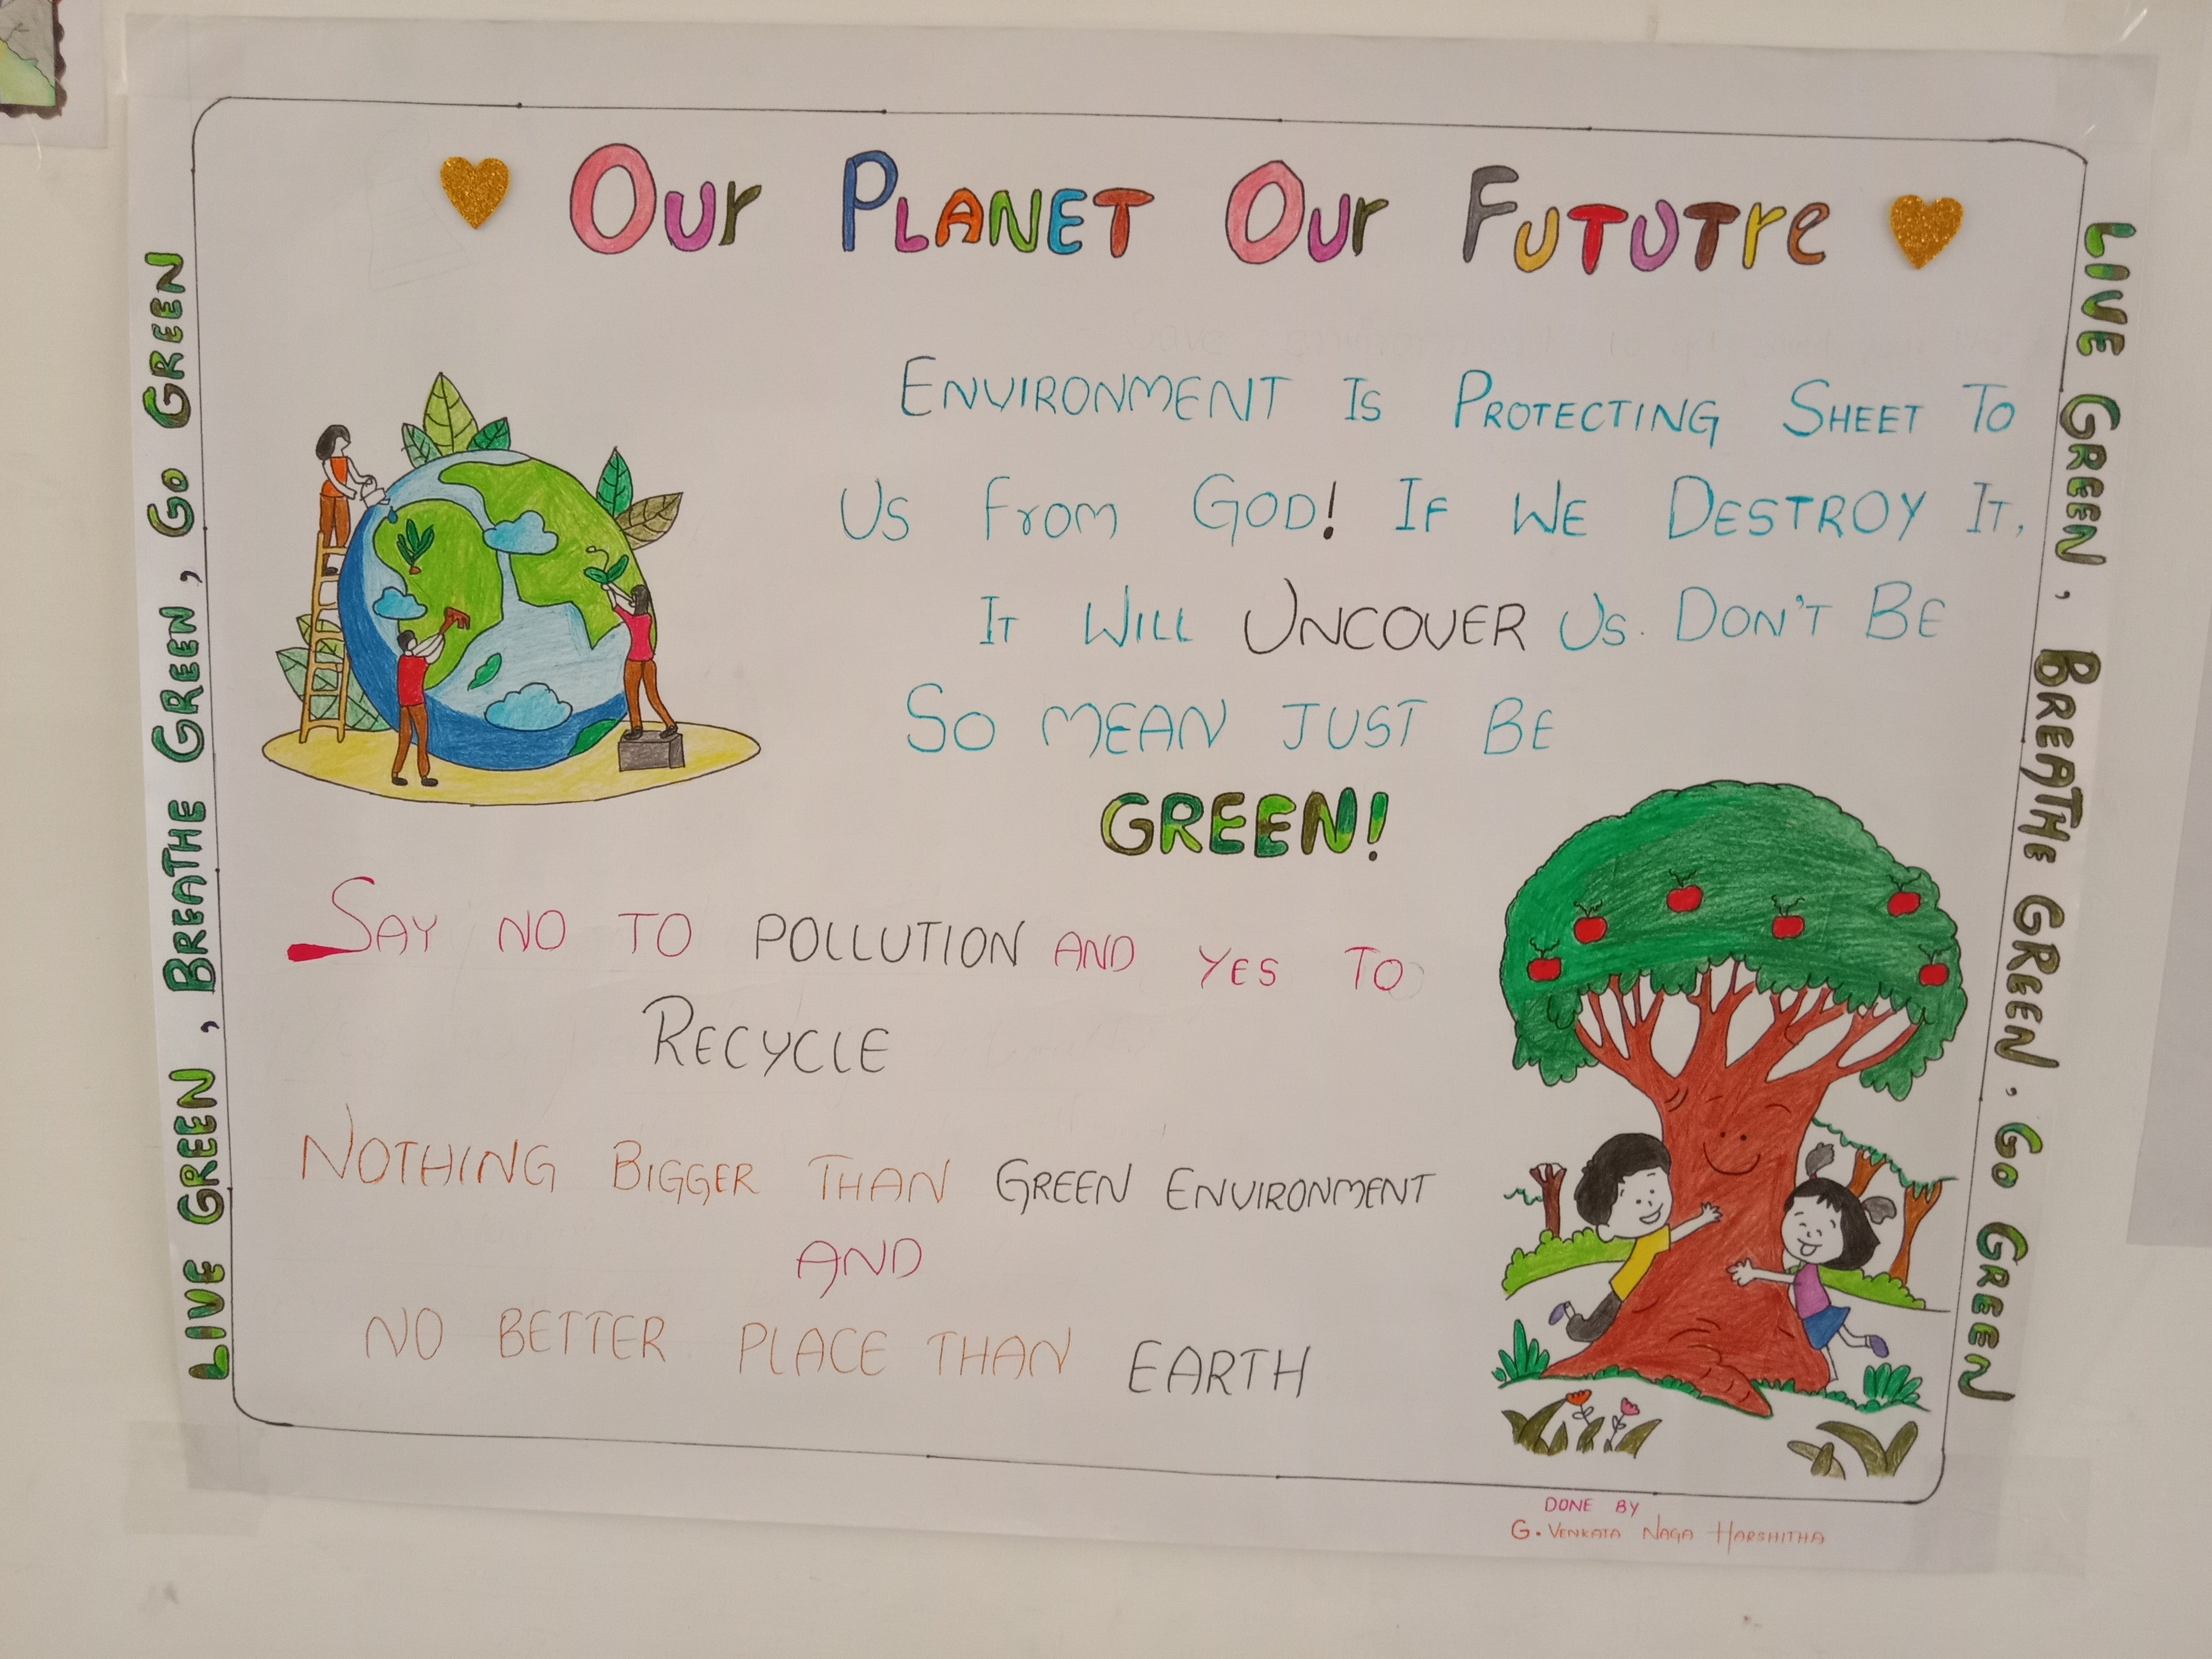 Our PLANET Our FUTUTre
LIVE GREEN, BREATHE GREEN, GO GREEN
ENVIRONMENT IS PROTECTING SHEET TO
US From GOD! IF WE DESTROY IT,
IT WILL UNCOVER US. DON'T BE
SO MEAN JUST BE
GREEN!
SAY NO TO POLLUTION AND YES TO
RECYCLE
NOTHING BIGGER THAN GREEN ENVIRONMENT
AND
NO BETTER PLACE THAN EARTH
LIVE GREEN, BREATHE GREEN, GO GREEN
DONE BY
G. VENKATA NAGA HARSHITHA